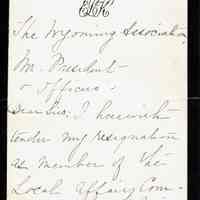 ELK
The Wyoming Association
Mr. President
& Officers:
Dear Sirs, I herewith
tender my resignation
as member of the
Local Affairs Com-